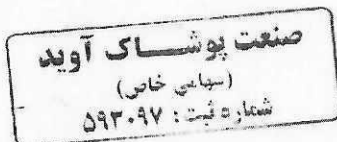 صنعت پوشاک آوید
(سهامی خاص)
شماره ثبت: ۵۹۳۰۹۷